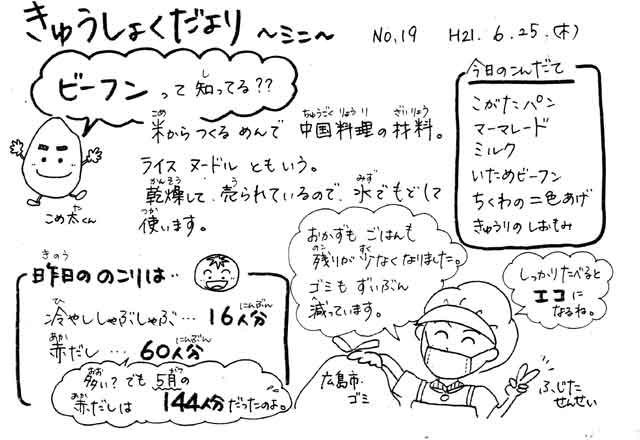 きゅうしょくだより ～ミニ～ No.19 H21. 6.25.(木)
ビーフンって知ってる??
米からつくるめんで中国料理の材料。
ライスヌードルともいう。
乾燥して、売られているので、水でもどして
使います。
こめ太くん
今日のこんだて
こがたパン
マーマレード
ミルク
いためビーフン
ちくわの二色あげ
きゅうりのしおもみ
昨日ののこりは‥
冷やししゃぶしゃぶ… 16人分
赤だし … 60人分
多い? でも 5月の
赤だしは 144人分だったのよ。
おかずも ごはんも
残りが少なくなりました。
ゴミも ずいぶん
減っています。
広島市・
ゴミ
しっかりたべると
エコに
なるね。
ふじた
せんせい